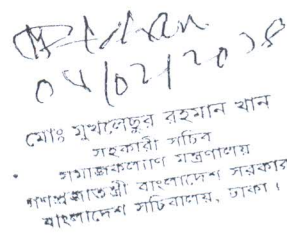 ০৭/০২/২০১৪
মোঃ মুখলেছুর রহমান খান
সহকারী সচিব
সমাজকল্যাণ মন্ত্রণালয়
গণপ্রজাতন্ত্রী বাংলাদেশ সরকার
বাংলাদেশ সচিবালয়, ঢাকা।